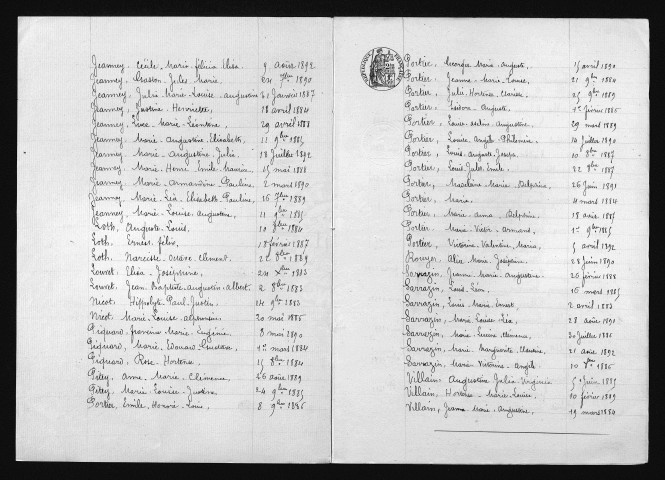 Jeanney, Cécile Marie Félicie Elisa 9 août 1892
Jeanney, Gaston Jules Marie 1890
Jeanney, Julie Marie Louise Augustine 31 janvier 1887
Jeanney, Justine Henriette 18 avril 1884
Jeanney, Luce Marie Léontine, 29 avril 1888
Jeanney, Marie Augustine Elisabeth, 11 9bre 1885
Jeanney, Marie Augustine Julie 18 juillet 1892
Jeanney, Marie Henri Emile Maurice 15 mai 1888
Jeanney, Marie Armandine Pauline, 2 mars 1890
Jeanney, Marie Léa Elisabeth Pauline, 16 7bre 1889
Jeanney, Marie Louise Augustine, 11 9bre 1885
Loth, Auguste Louis, 10 8bre 1884
Loth, Ernest Félix, 18 février 1887
Loth, Narcisse Octave Clément, 2 8bre 1889
Louvet, Elisa Joséphine, 24 Xbre 1883
Louvet, Jean Baptiste Augustin Albert, 2 8bre 1883
Nicot, Hippolyte Paul Justin, 24 1883
Nicot, Marie Louise Alphonsine, 20 mai 1886
Piquard, Marie Eugénie, 8 mai 1890
Piquard, Marie Edouard Gustave, 1er mars 1884
Piquard, Rose Hortense 15 8bre 1884
Pitey, Anne Marie Clémence, 26 août 1889
Pitey, Marie Louise Justine, 24 9bre 1885
Portier, Emile Honoré Louis, 8 9bre 1886
Portier, Georges Marie Auguste, 15 avril 1890
Portier, Jeanne Marie Louise, 21 9bre 1884
Portier, Julie Hortense Clarisse 25 9bre 1889
Portier, Isidore Auguste, 1er février 1886
Portier, Louis Auguste, 29 mars 1889
Portier, Louise Angèle Philomène, 14 juillet 1890
Portier, Louis Auguste Joseph, 10 8bre 1887
Portier, Louis Jules Emile, 22 8bre 1887
Portier, Madeleine Marie Delphine, 26 juin 1891
Portier, Maria, 11 mars 1884
Portier, Marie Anna Delphine, 18 août 1885
Portier, Marie Victor Armand, 1er 9bre 1885
Portier, Victorine Valentine Maria, 5 avril 1892
Rouyer, Alix Marie Joséphine 28 juin 1890
Sarrazin, Jeanne Marie Augustine 26 février 1888
Sarrazin, Louis Léon, 16 mars 1885
Sarrazin, Louis Marie Ernest 2 avril 1883
Sarrazin, Marie Louise Léa, 28 août 1891
Sarrazin, Marie Lucine Clémence, 30 juillet 1886
Sarrazin, Marie Marguerite Clarisse, 21 août 1892
Sarrazin, Marie Victorine Angèle, 10 1886
Villain, Augustine Julia Virginie 5 juin 1885
Villain, Hortense Marie Louise, 10 février 1889
Villain, Jeanne Marie Augustine, 19 mars 1884